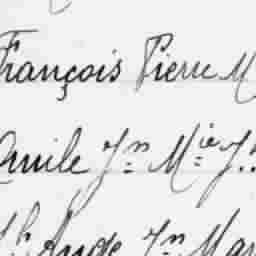 François Pierre M
Emile Jn Mie J
Jh Ange Jn Mar